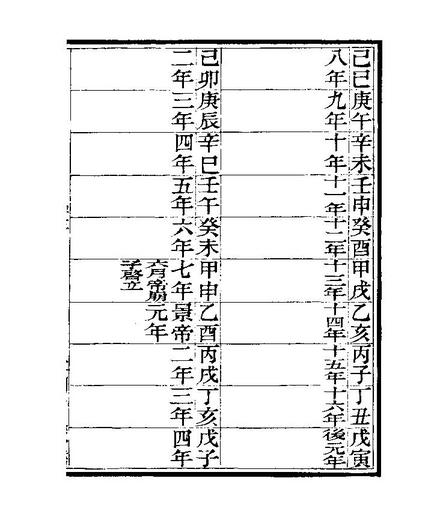 己巳庚午辛未壬申癸酉甲戌乙亥丙子丁丑戊寅
八年九年十年十一年十二年十三年十四年十五年十六年後元年
己卯庚辰辛巳壬午癸未甲申乙酉丙戌丁亥戊子
二年三年四年五年六年七年景帝二年三年四年
六月帝崩元年
子啓立